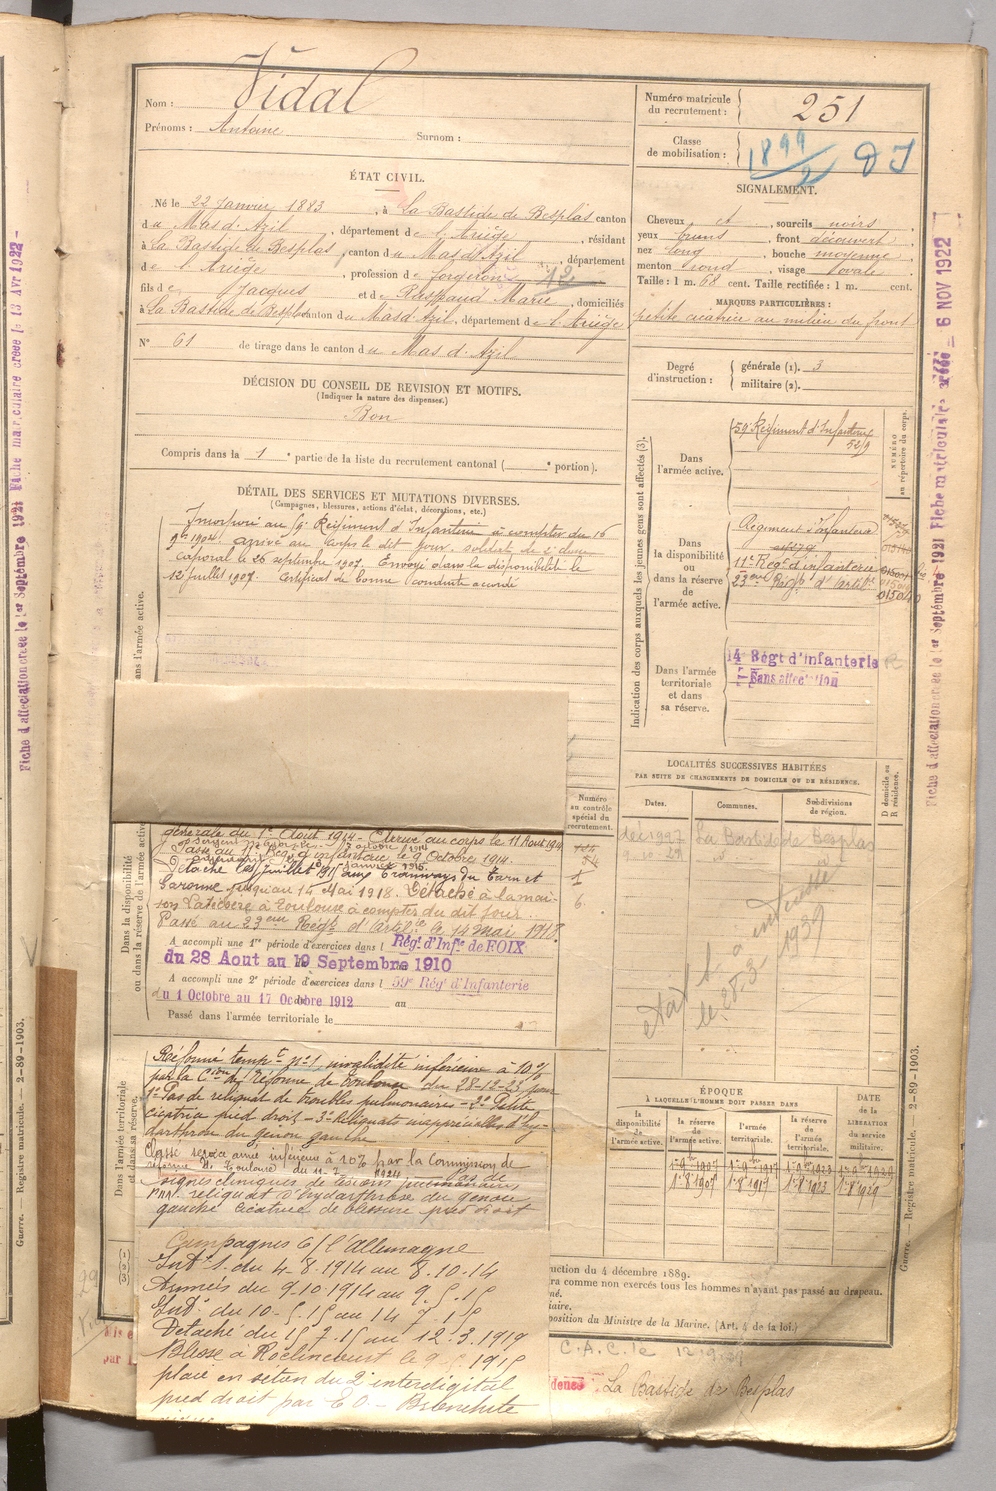 Nom : Vidal
Prénoms : Antoine Surnom :
Numéro matricule du recrutement : 251
Classe de mobilisation : 1899/2 DI
ÉTAT CIVIL.
Né le 22 Janvier 1883, à La Bastide de Besplas canton
du Mas d'Azil, département de l'Ariège, résidant
à La Bastide de Besplas, canton du Mas d'Azil, département
de l'Ariège, profession de forgeron 12
fils de Jacques et de Raspaud Marie, domiciliés
à La Bastide de Besplas canton du Mas d'Azil, département de l'Ariège
N° 61 de tirage dans le canton du Mas d'Azil
SIGNALEMENT.
Cheveux et, sourcils noirs,
yeux bruns, front découvert,
nez long, bouche moyenne,
menton rond, visage ovale.
Taille : 1 m. 68 cent. Taille rectifiée : 1 m. cent.
MARQUES PARTICULIÈRES :
petite cicatrice au milieu du front
Degré d'instruction : générale (1). 3
militaire (2).
DÉCISION DU CONSEIL DE REVISION ET MOTIFS.
(Indiquer la nature des dispenses.)
Bon
Compris dans la 1e partie de la liste du recrutement cantonal ( e portion).
DÉTAIL DES SERVICES ET MUTATIONS DIVERSES.
(Campagnes, blessures, actions d'éclat, décorations, etc.)
Incorporé au 59e Régiment d'Infanterie à compter du 16
9bre 1904. arrivé au corps le dit jour. soldat de 2e classe
caporal le 26 septembre 1907. Envoyé dans la disponibilité le
12 juillet 1907. Certificat de bonne conduite accordé
Dans l'armée active.
Indication des corps auxquels les jeunes gens sont affectés (3).
NUMÉRO au répertoire du corps.
Dans l'armée active.
59e Régiment d'Infanterie
Dans la disponibilité ou dans la réserve de l'armée active.
Régiment d'Infanterie
11e Régt d'infanterie
23eme Régt d'Artie
01504
Dans l'armée territoriale et dans sa réserve.
14e Régt d'Infanterie
Sans affectation
LOCALITÉS SUCCESSIVES HABITÉES
PAR SUITE DE CHANGEMENTS DE DOMICILE OU DE RÉSIDENCE.
Dates.
Communes.
Subdivisions de région.
D domicile ou R résidence.
La Bastide de Besplas
9.10.29
le 28.3 1939
Numéro au contrôle spécial du recrutement.
Dans la disponibilité ou dans la réserve de l'armée active
générale du 1er Août 1914 - arrivé au corps le 11 Août 1914
Passé au Régt d'infanterie le 9 Octobre 1914.
Détaché le Juillet 1915 aux Tramways du Tarn et
Garonne jusqu'au 15 Mai 1918. Détaché à la mai-
son Latécoère à Toulouse à compter du dit jour.
Passé au 23eme Régt d'Artie le 14 mai 1918.
A accompli une 1re période d'exercices dans le Régt d'Infie de FOIX
du 28 Aout au 19 Septembre 1910
A accompli une 2e période d'exercices dans le 59e Rég' d'Infanterie
du 1 Octobre au 17 Octobre 1912 au
Passé dans l'armée territoriale le
Dans l'armée territoriale et dans sa réserve.
Réformé tempre n°1, invalidité inférieure à 10%
par la Cion de réforme de Toulouse du 28-12-23 pour
1° Pas de reliquat de troubles pulmonaires - 2° Petite
cicatrice pied droit - 3° Reliquats inappréciables d'hy-
darthrose du genou gauche
Classé service armé inférieur à 10% par la Commission de
réforme de Toulouse du 11-7 1924 Pas de
signes cliniques de lésions pulmonaires
reliquat d'hydarthrose du genou
gauche cicatrice de blessure pied droit
Campagnes C/ l'Allemagne
Intr S. du 4-8-1914 au 8.10.14
Armées du 9.10.1914 au 9.5.15
Intr du 10-5.15 au 14.7.15
Détaché du 15.7.15 au 12.3.1919
Blessé à Roclincourt le 9.5.1915
plaie en séton du 2e interdigital
pied droit par E.O. - Bronchite
ÉPOQUE
À LAQUELLE L'HOMME DOIT PASSER DANS
la disponibilité de l'armée active.
la réserve de l'armée active.
l'armée territoriale.
la réserve de l'armée territoriale.
DATE de la LIBÉRATION du service militaire.
1er 9bre 1907 1er 9bre 1917 1er 9bre 1923 1er 9bre 1929
1er 8 1907 1er 8 1917 1er 8 1923 1er 8 1929
uction du 4 décembre 1889.
ra comme non exercés tous les hommes n'ayant pas passé au drapeau.
né.
iaire.
position du Ministre de la Marine. (Art. 4 de la loi.)
C.A.C. le
dence : La Bastide de Besplas
Guerre. — Registre matricule. — 2-89-1903.
Guerre. — Registre matricule. — 2-89-1903.
Fiche d'affectation créée le 1er Septembre 1921 Fiche matriculaire créée le 13 Avr 1922
Fiche d'affectation créée le 1er Septembre 1921 Fiche matriculaire créée - 6 NOV 1922